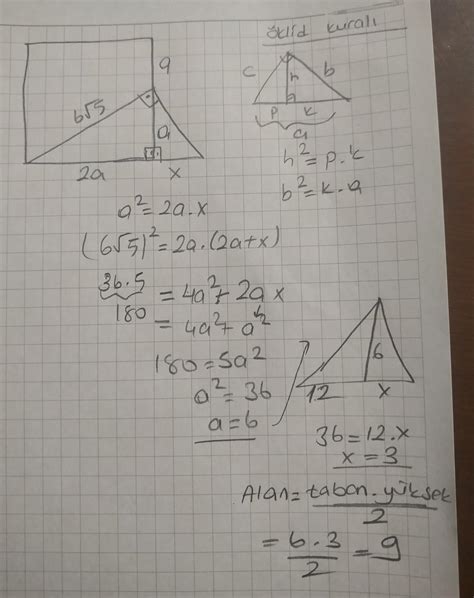 öklid kuralı
a
6√5
a
2a
x
c
h
b
p
k
a
h² = p.k
b² = k.a
a² = 2a.x
(6√5)² = 2a.(2a+x)
36.5 = 4a² + 2a x
180 = 4a² + a²
180 = 5a²
a² = 36
a = 6
6
12
x
36 = 12.x
x = 3
Alan = taban.yüksek
2
= 6.3 = 9
2